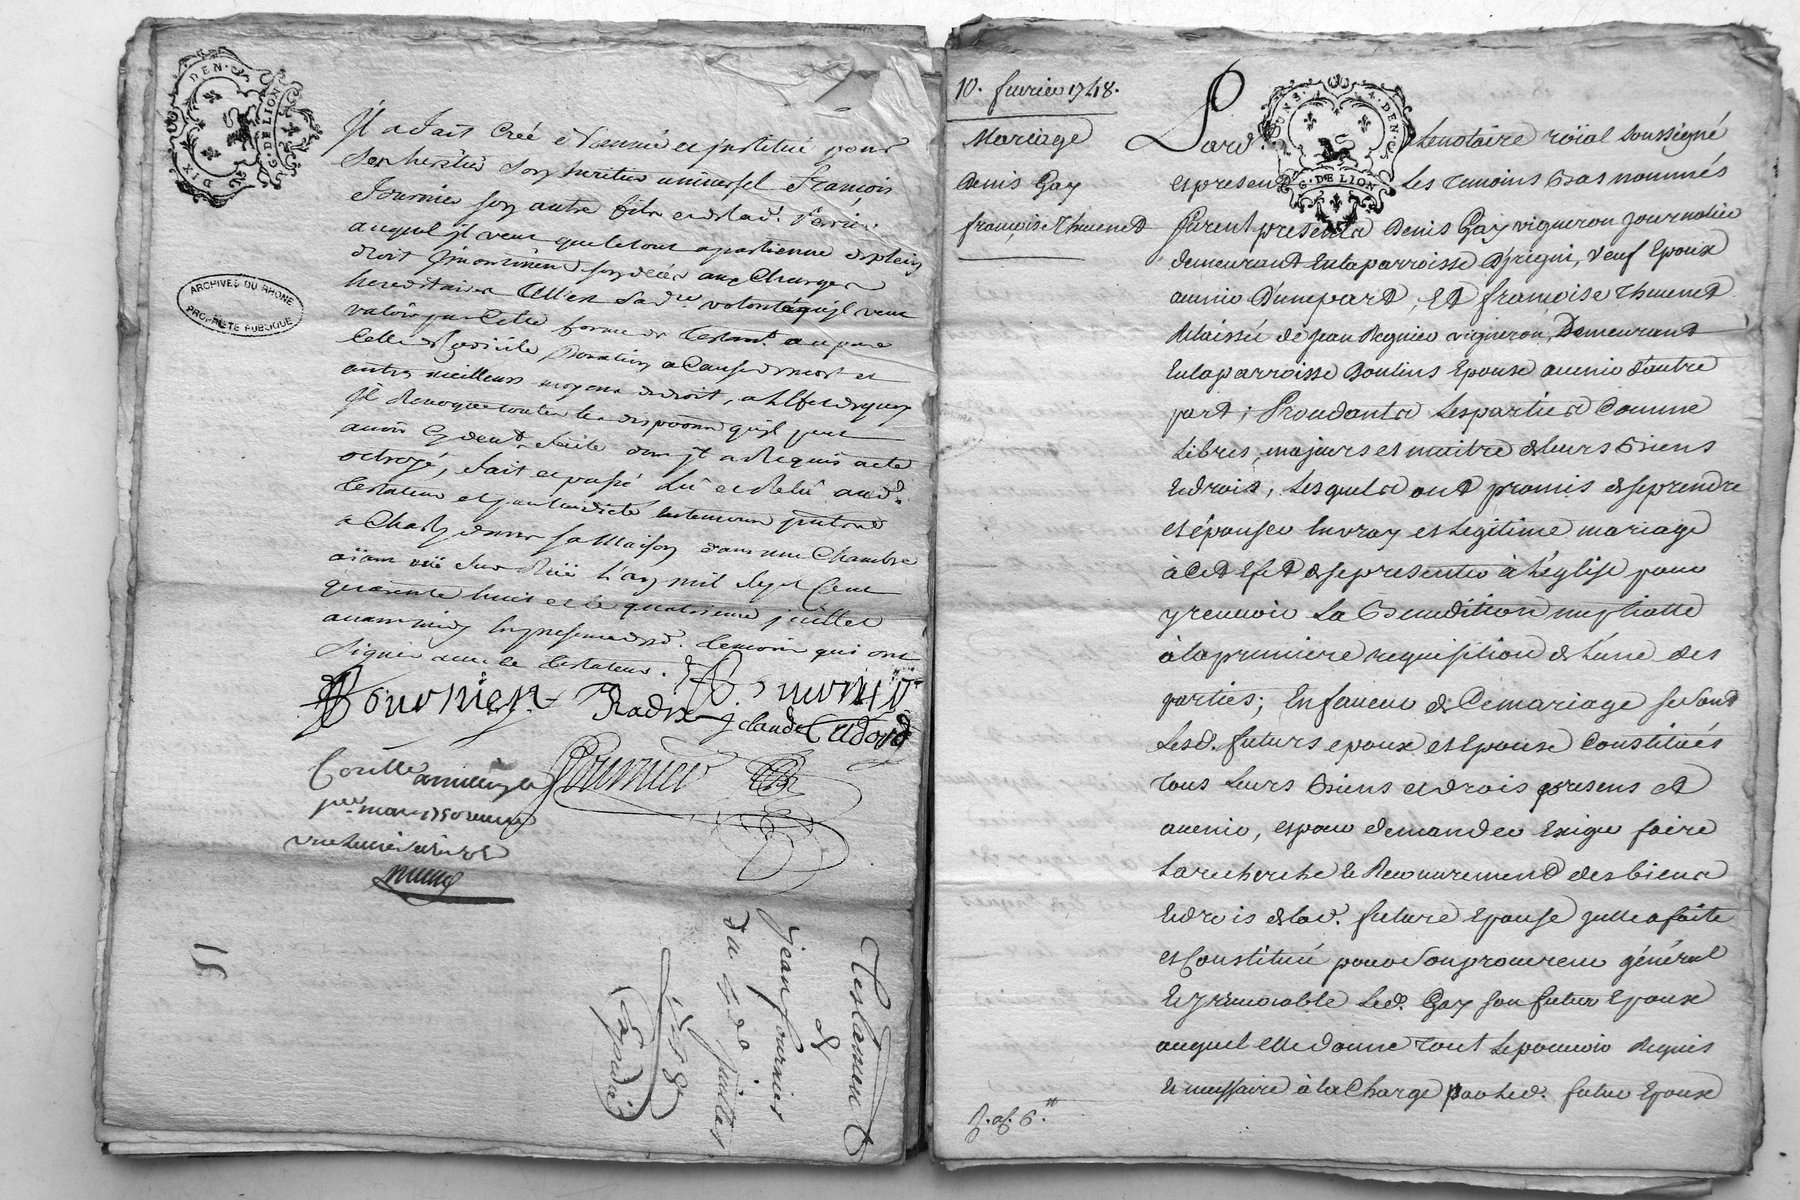 DIX DEN.
G. DE LION
Il a fait Créé et Nommé et institué pour
Son heritier universel François
fournier son autre fils et de lad. Perrin
auquel il veut que le tout apartienne de plein
droit son deces aux Charges
hereditaires C'est Sa volonté qu'il veut
valoir par Cette forme de testamt. ou par
Celle de Codicile, Donation a Cause de mort et
autres meilleurs moyens de droit,
Il Revoque toutes les dispoõns qu'il peut
avoir cy devt. faite dont il a Requis acte
octroyé, fait et passé Lû et Relû aud.
testateur et
a Charly dans sa Maison dans une Chambre
aïant vüe Sur Rüe L'an mil Sept Cent
quarante huit et le quatrieme juillet
avant midy en presence desd. temoins qui ont
Signés avec le testateur.
fournier Radix fournier
claude
fournier
Testament
de
jean fournier
du 4e.
juillet
1748
ARCHIVES DU RHONE
PROPRIÉTÉ PUBLIQUE
10. fevrier 1748.
Mariage
Denis Gay
françoise Thuenet
DEN.
G. DE LION
Pard. Le notaire roïal Soussigné
et presents Les temoins bas nommés
furent presents Denis Gay vigneron journalier
demeurant en la parroisse d'jrigni, veuf Epoux
avenir d'une part, Et françoise Thuenet
Relaissée de jean Regnier vigneron, Demeurant
en la parroisse Doulins Epouse avenir d'autre
part; Procedants Les parties Comme
Libres, majeurs et maitre de leurs biens
et drois, Lesquels ont promis de se prendre
et épouser en vray et Legitime mariage
à Cet Efet de se presenter à L'église pour
y recevoir La Benedition nuptialle
à la premiere requisition de L'une des
parties; En faveur de Ce mariage se sont
Lesd. futurs epoux et Epouse Constitués
tous Leurs biens et drois presens et
avenir, et pour demander Exiger faire
La recherche et Recouvrement des biens
et drois de lad. future Epouse qu'elle a faite
et Constitué pour Son procureur général
et jrrevocable Led. Gay Son futur Epoux
auquel Elle donne tout Le pouvoir Requis
et necessaire à la Charge par Led. futur Epoux